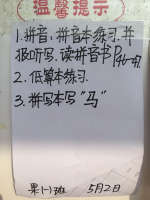 温馨提示
1.拼音:拼音本练习.并
报听写.读拼音书P46-47
2.低算本练习
3.拼写本写"马"
果(一)班 5月2日